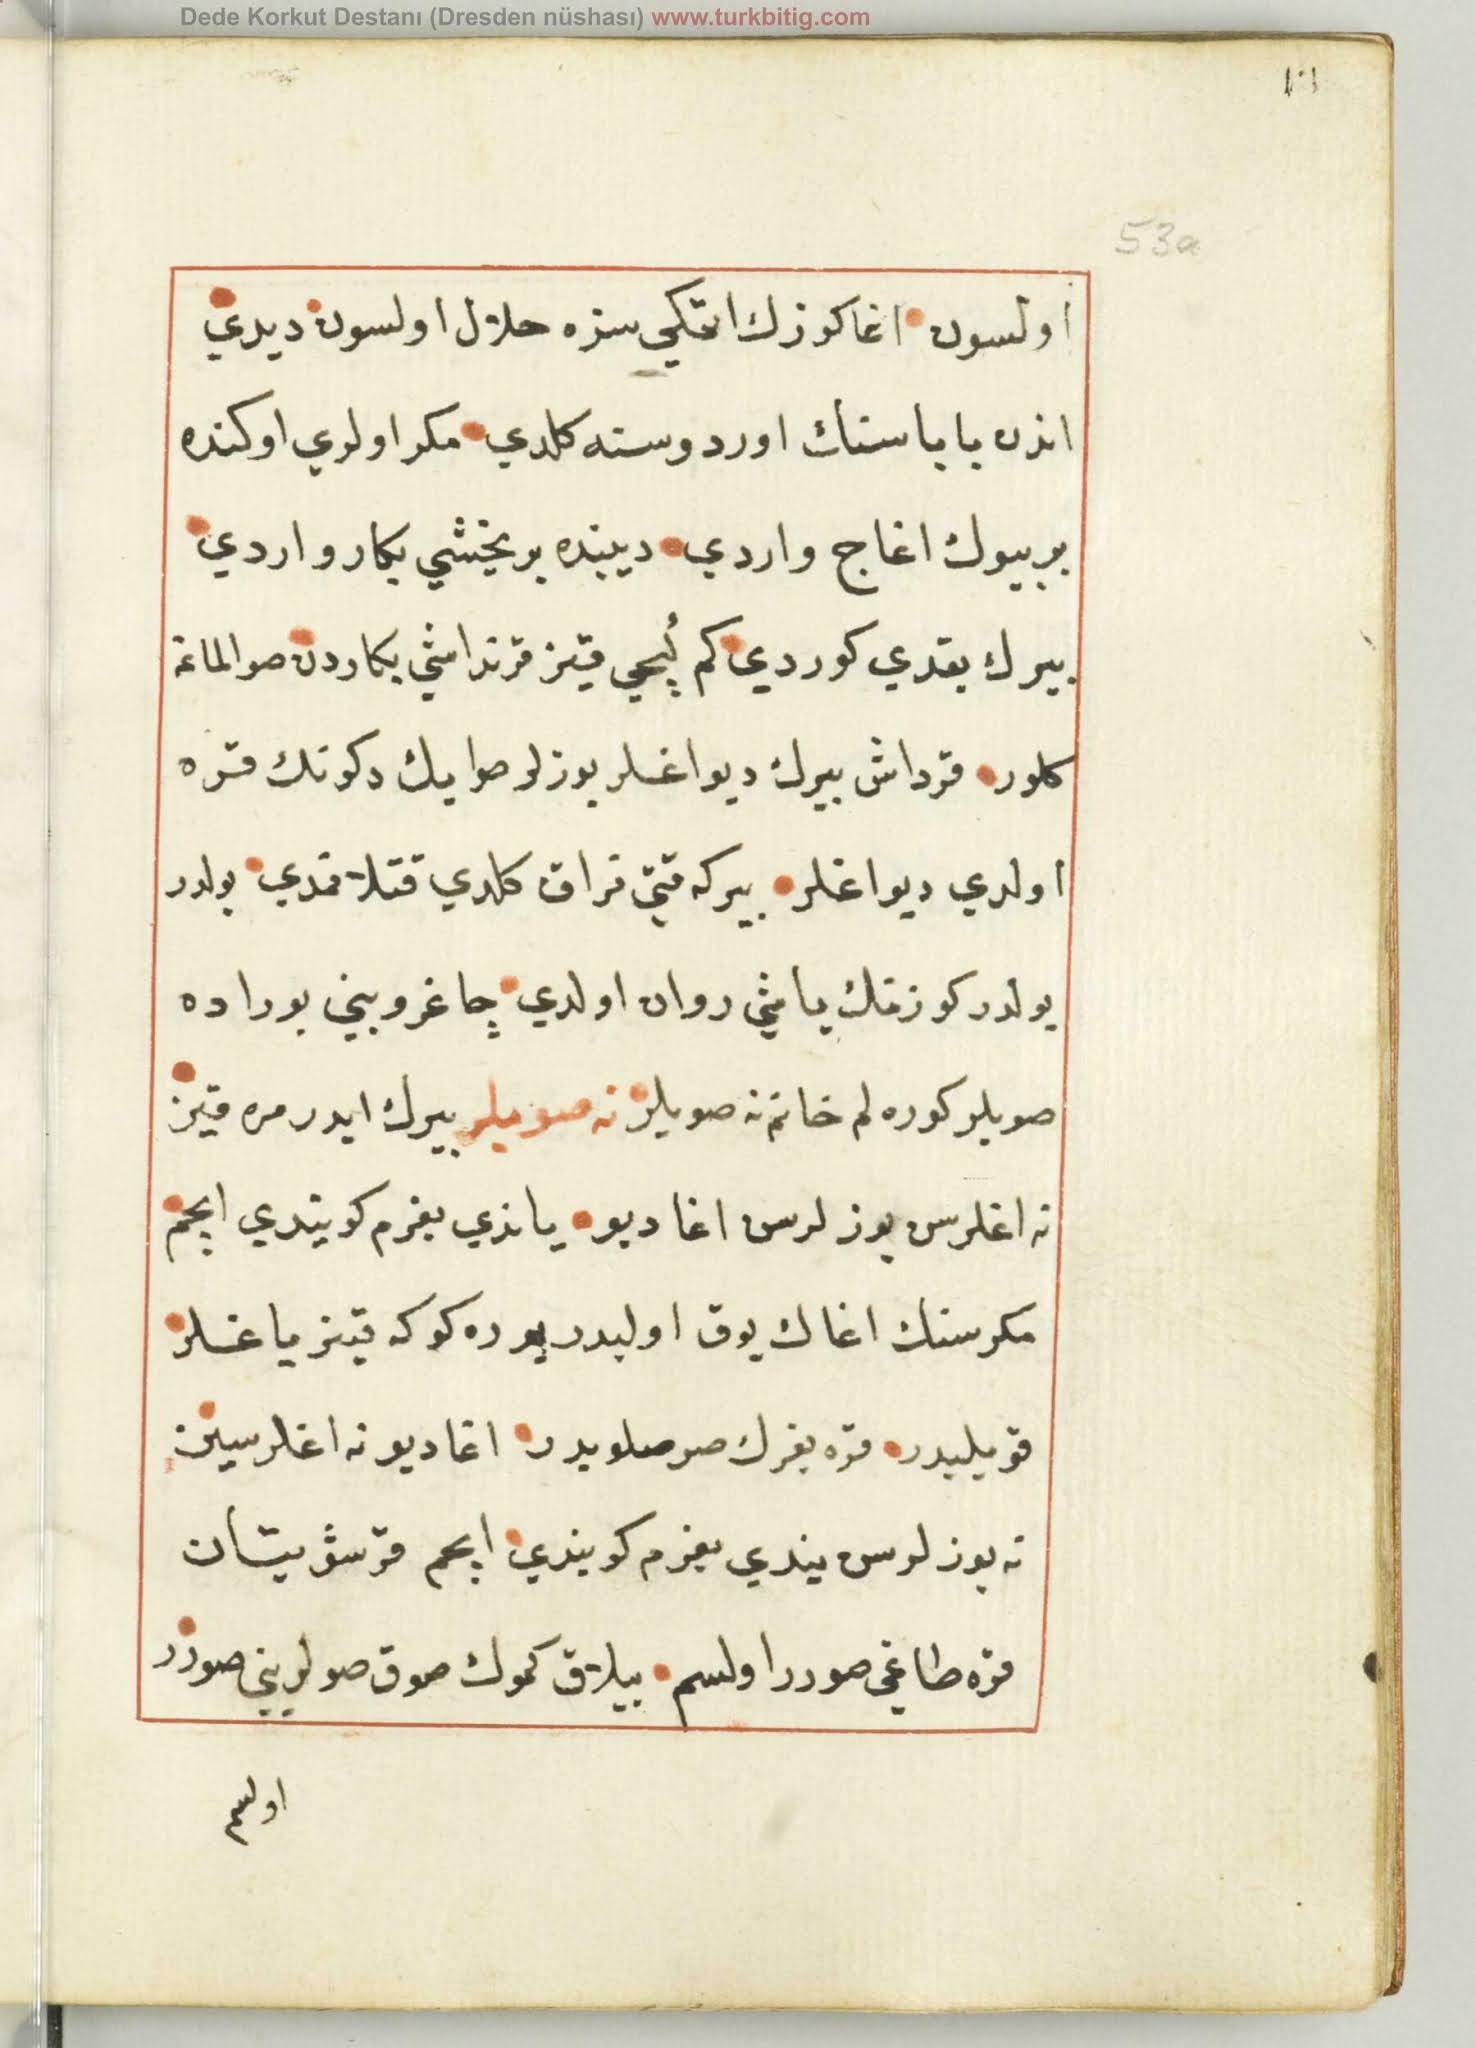 Dede Korkut Destanı (Dresden nüshası) www.turkbitig.com
١٠١
53a
اولسون اغا كوزك اتمكي سزه حلال اولسون ديدي
اندن باباسنك اوردوسنه كلدي مكر اولري اوكنده
بر بيوك اغاج واردي ديبنده بر يخشي بكار واردي
بيرك بقدي كوردي كم كيچي قيز قرنداشي بكاردن صو الماغه
كلور قرداش بيرك ديو اغلر بوزلر صوايك دكونك قره
اولدي ديو اغلر بيركه قتي فراق كلدي قتلانمدي بولدر
بولدر كوزنك ياشي روان اولدي چاغروبني بوراده
صويلر كوره لم خانم نه صويلر نه صويلر بيرك ايدر مره قيز
نه اغلرسن بوزلرسن اغا ديو ياندي بغرم كويندي ايچم
مكر سنك اغاك يوق اولبدر يوره كوكه قينر ياغلر
قويلبدر قره بغرك صرصلوبدر اغا ديو نه اغلرسين
نه بوزلرسن يندي بغرم كويندي ايچم قرشو يتان
قره طاغي صورر اولسم ييلاق كموك صوق صولريني صورر
اولسم